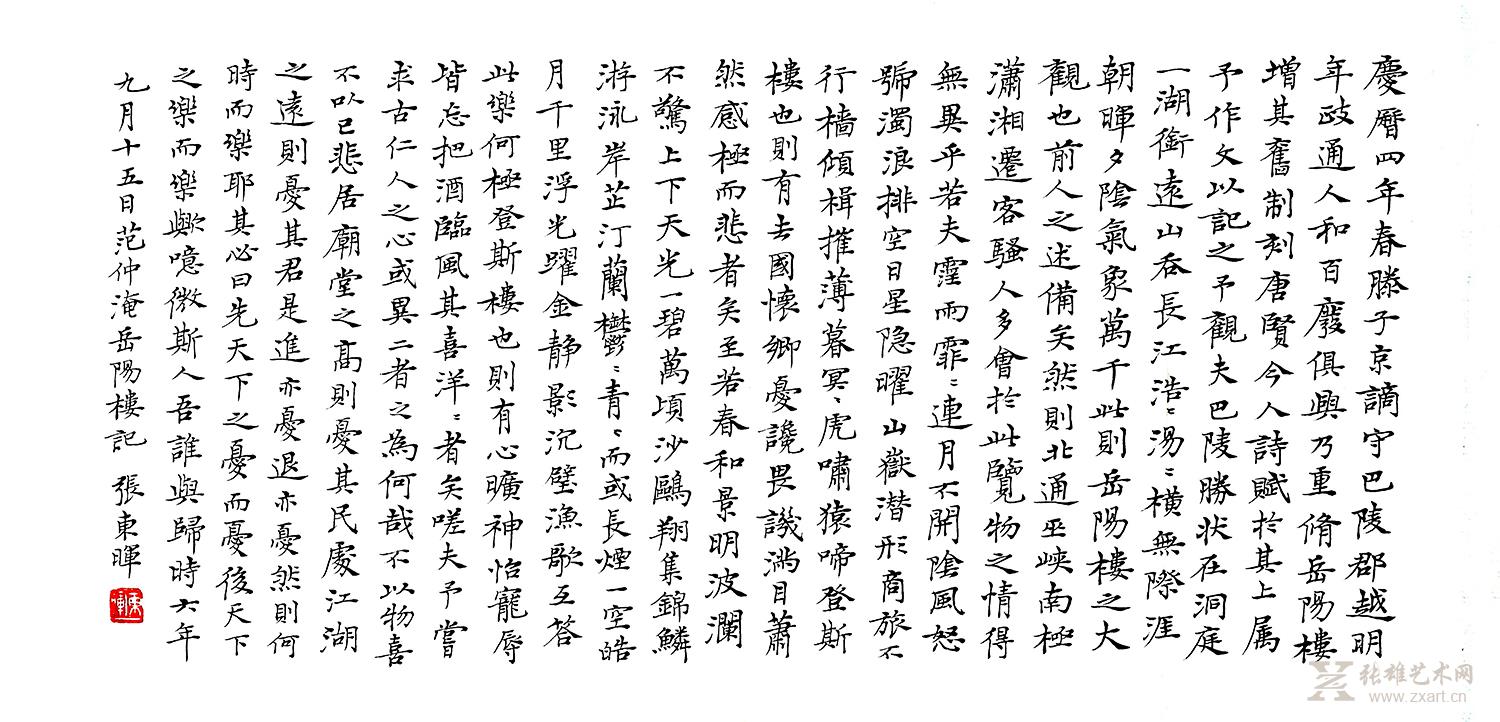 慶曆四年春滕子京謫守巴陵郡越明
年政通人和百廢俱興乃重脩岳陽樓
增其舊制刻唐賢今人詩賦於其上属
予作文以記之予觀夫巴陵勝状在洞庭
一湖銜遠山吞長江浩〻湯〻横無際涯
朝暉夕陰氣象萬千此則岳陽樓之大
觀也前人之述備矣然則北通巫峽南極
瀟湘遷客騷人多會於此覽物之情得
無異乎若夫霪雨霏〻連月不開陰風怒
號濁浪排空日星隐曜山嶽潜形商旅不
行檣傾楫摧薄暮冥〻虎嘯猿啼登斯
樓也則有去國懷鄉憂讒畏譏滿目蕭
然感極而悲者矣至若春和景明波瀾
不驚上下天光一碧萬頃沙鷗翔集錦鱗
游泳岸芷汀蘭欝〻青〻而或長煙一空皓
月千里浮光躍金静影沉璧漁歌互答
此樂何極登斯樓也則有心曠神怡寵辱
皆忘把酒臨風其喜洋〻者矣嗟夫予嘗
求古仁人之心或異二者之為何哉不以物喜
不以己悲居廟堂之高則憂其民處江湖
之遠則憂其君是進亦憂退亦憂然則何
時而樂耶其必曰先天下之憂而憂後天下
之樂而樂歟噫微斯人吾誰與歸時六年
九月十五日范仲淹岳陽樓記 張東暉
张雄艺术网
www.zxart.cn